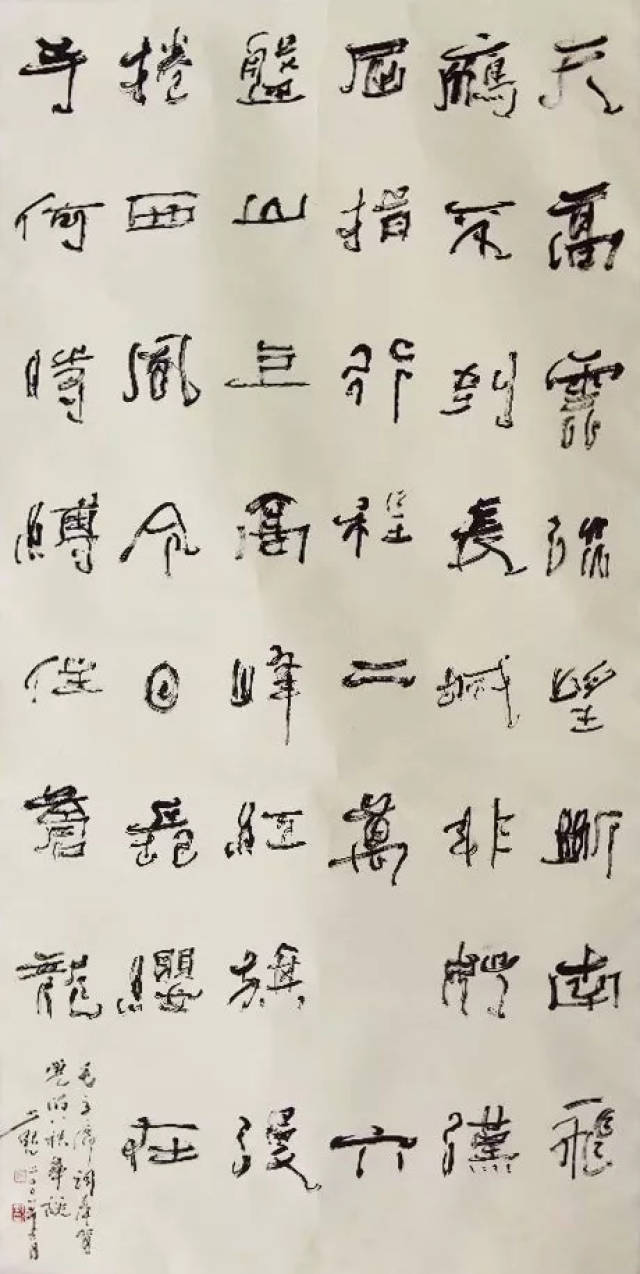 天高雲淡望斷南飛
鴈不到長城非好漢
屈指行程二萬六
盤山上高峰紅旗漫
捲西風今日長纓在
手何時縛住蒼龍
毛主席詞